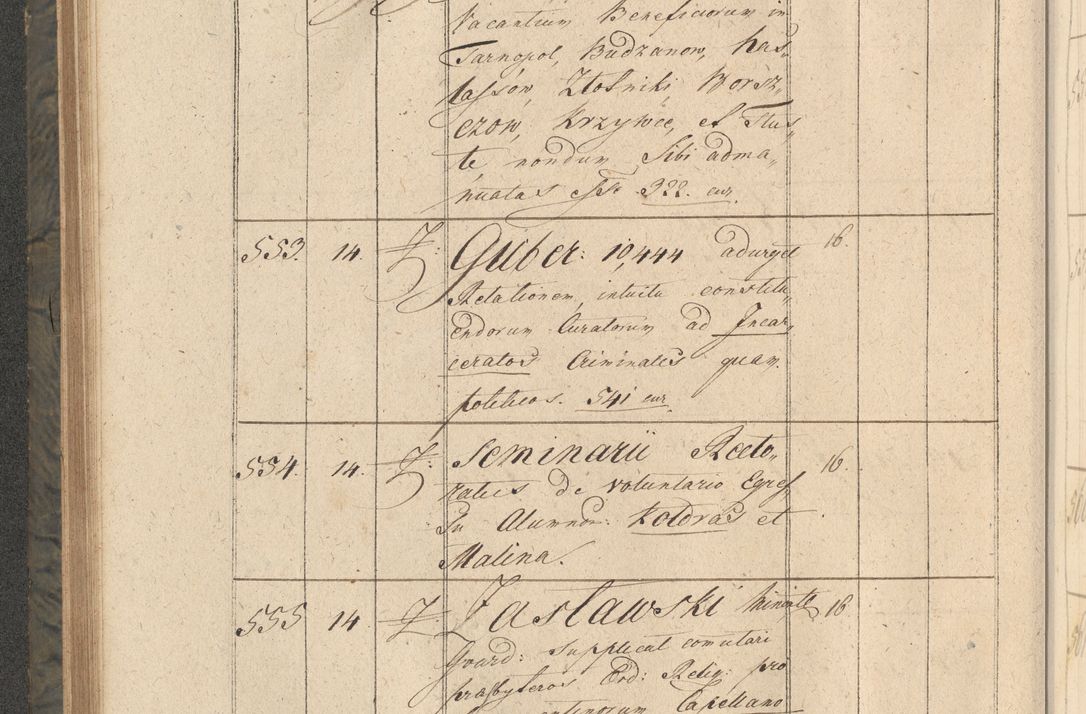 Vacantium Beneficiorum in
Tarnopol, Budzanow, Kas,,
tassow, Złotniki Borsz,,
czow, Krzywce, et Tłus,,
te, nondum Sibi adma,,
nuatas esse 322. cur
553. 14. Guber: 10,444 adurget 16.
Relationem, intuitu constitu,,
endorum Curatorum ad Incar,,
ceratos Criminales quam
politicos. 541 cur
554. 14. Seminarii Recto,, 16.
ratus de voluntario Egres,,
su Alumnor: Kołdras et
Malina.
555 14 Jasławski Minorit 16
Guard: supplicat comutari
praesbyteros Ord: Relig: pro
Capellano